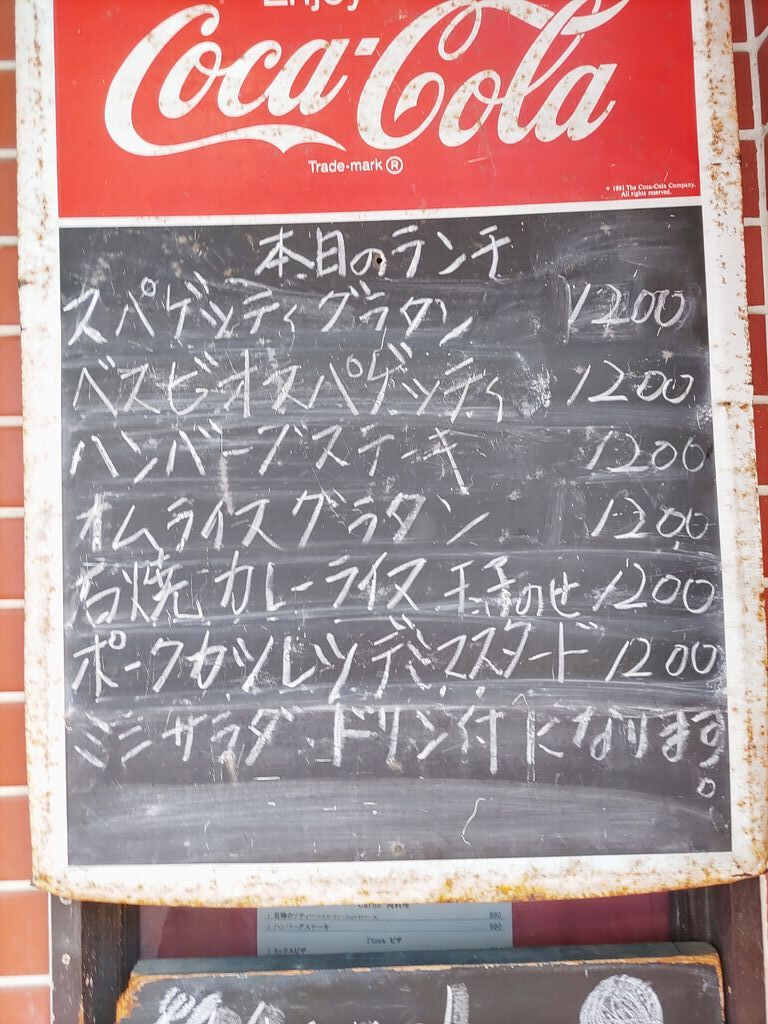 Enjoy
Coca-Cola
Trade-mark ®
© 1991 The Coca-Cola Company.
All rights reserved.
本日のランチ
スパゲッティグラタン 1200
ベスビオスパゲッティ 1200
ハンバーグステーキ 1200
オムライスグラタン 1200
石焼カレーライス 玉子のせ 1200
ポークカツレツデミマスタード 1200
ミニサラダ ドリン付になります。
Carne 肉料理
880
2. ハンバーグステーキ 880
Pizza ピザ
1. ミックスピザ